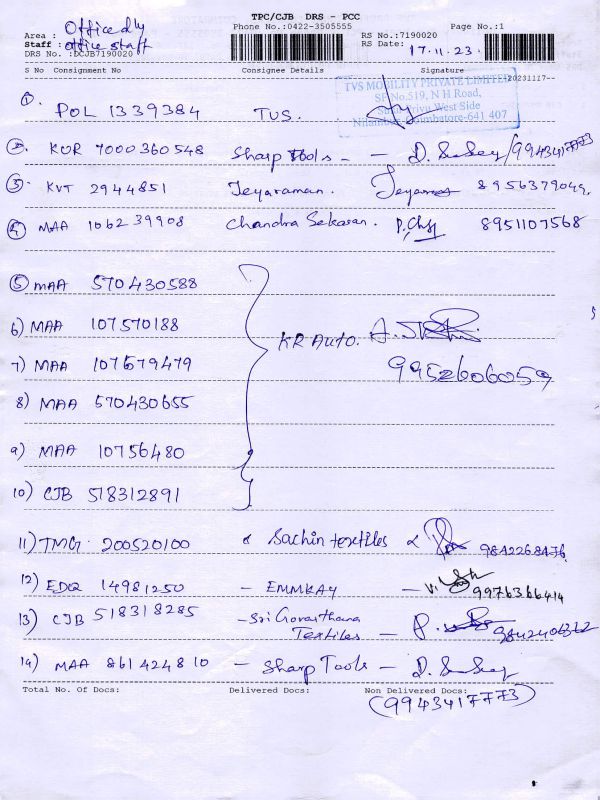 TPC/CJB DRS - PCC
Phone No.:0422-3505555 Page No.:1
Area : Office dly
Staff : office staff
DRS No. :DCJB7190020
RS No.:7190020
RS Date: 17.11.23.
S No Consignment No Consignee Details Signature 20231117-
TVS MOBILITY PRIVATE LIMITED
SF No.519, N H Road,
West Side
Coimbatore-641 407
1. POL 1339384 TVS.
2. KUR 7000360548 Sharp Tools - - /9943417773
3. KVT 2944851 Jeyaraman. 8956379049
4 MAA 106239908 Chandra Sekaran. 8951107568
5 MAA 570430588
6) MAA 107570188
KR Auto.
7) MAA 107679479
9952606059
8) MAA 570430655
9) MAA 10756480
10) CJB 518312891
11) TMG 200520100 Sachin textiles 9842268476
12) EDQ 14981250 - EMMKAY - 9976366414
13) CJB 518318285 - Sri Govarthana
Textiles - 9842406312
14) MAA 861424810 - Sharp Tools -
Total No. Of Docs: Delivered Docs: Non Delivered Docs:
(9943417773)